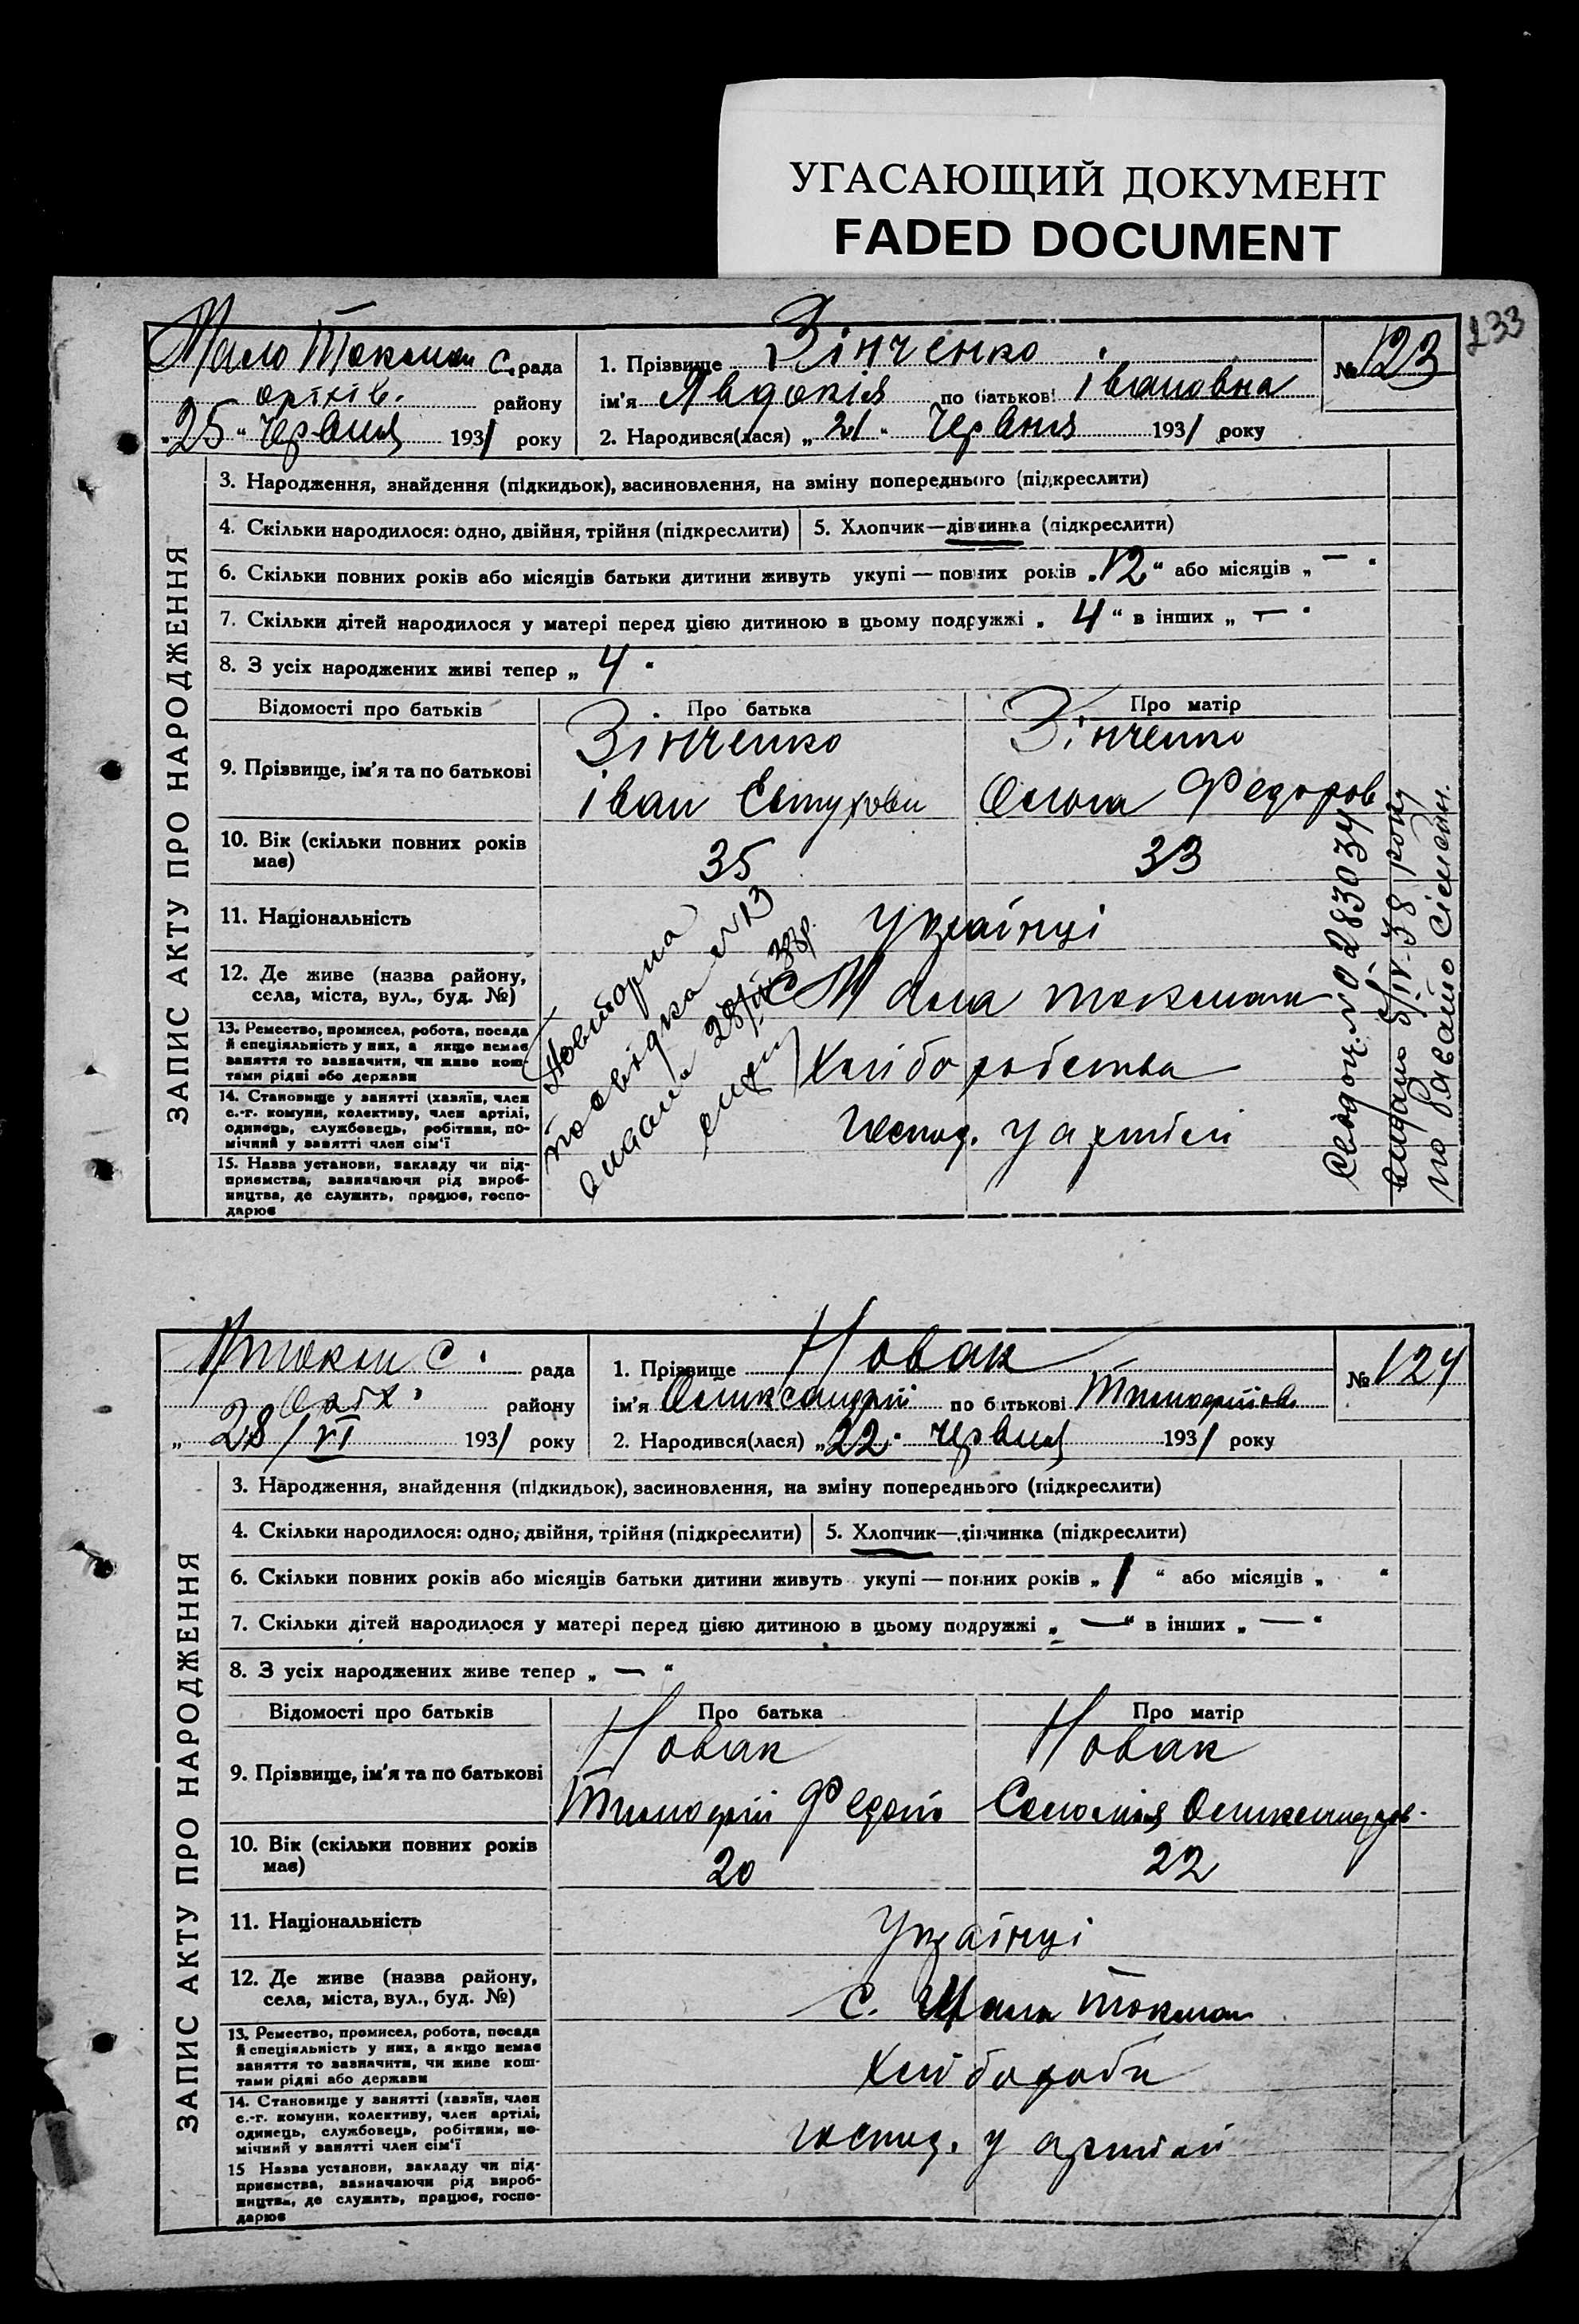 УГАСАЮЩИЙ ДОКУМЕНТ
FADED DOCUMENT
233
Мало Токмак С. рада
оріхів. району
„25“ Червня 1931 року
1. Прізвище Зінченко
ім'я Явдокія по батькові Івановна
2. Народився(лася) „21“ Червня 1931 року
№ 123
ЗАПИС АКТУ ПРО НАРОДЖЕННЯ
3. Народження, знайдення (підкидьок), засиновлення, на зміну попереднього (підкреслити)
4. Скільки народилося: одно, двійня, трійня (підкреслити) 5. Хлопчик—дівчинка (підкреслити)
6. Скільки повних років або місяців батьки дитини живуть укупі — повних років „12“ або місяців „—“
7. Скільки дітей народилося у матері перед цією дитиною в цьому подружжі „4“ в інших „—“
8. З усіх народжених живі тепер „4“
Відомості про батьків Про батька Про матір
9. Прізвище, ім'я та по батькові
Зінченко Зінченко
Іван Федоров
10. Вік (скільки повних років
має)
35 33
11. Національність
Українці
12. Де живе (назва району,
села, міста, вул., буд. №)
С Мала токмак
13. Ремество, промисел, робота, посада
й спеціяльність у них, а якщо немає
заняття то зазначити, чи живе кош-
тами рідні або держави
Хліборобства
14. Становище у занятті (хазяїн, член
с.-г. комуни, колективу, член артілі,
одинець, службовець, робітник, по-
мічний у занятті член сім'ї
господ. у артілі
15. Назва установи, закладу чи під-
приємства, зазначаючи рід вироб-
ництва, де служить, працює, госпо-
дарює
Повторна
посвідка №13
видана
Свідоц. №0283034
видано 5/IV-38 року
М токмак С. рада
Оріх. району
„28/VI 1931 року
1. Прізвище Новак
ім'я Олександрій по батькові
2. Народився(лася) „22“ Червня 1931 року
№ 124
ЗАПИС АКТУ ПРО НАРОДЖЕННЯ
3. Народження, знайдення (підкидьок), засиновлення, на зміну попереднього (підкреслити)
4. Скільки народилося: одно, двійня, трійня (підкреслити) 5. Хлопчик—дівчинка (підкреслити)
6. Скільки повних років або місяців батьки дитини живуть укупі — повних років „1“ або місяців „ “
7. Скільки дітей народилося у матері перед цією дитиною в цьому подружжі „—“ в інших „—“
8. З усіх народжених живе тепер „—“
Відомості про батьків Про батька Про матір
9. Прізвище, ім'я та по батькові
Новак Новак
Соломія Олександров.
10. Вік (скільки повних років
має)
20 22
11. Національність
Українці
12. Де живе (назва району,
села, міста, вул., буд. №)
С. Мала Токмак
13. Ремество, промисел, робота, посада
й спеціяльність у них, а якщо немає
заняття то зазначити, чи живе кош-
тами рідні або держави
Хлібороби
14. Становище у занятті (хазяїн, член
с.-г. комуни, колективу, член артілі,
одинець, службовець, робітник, по-
мічний у занятті член сім'ї
господ. у артілі
15 Назва установи, закладу чи під-
приємства, зазначаючи рід вироб-
ництва, де служить, працює, госпо-
дарює